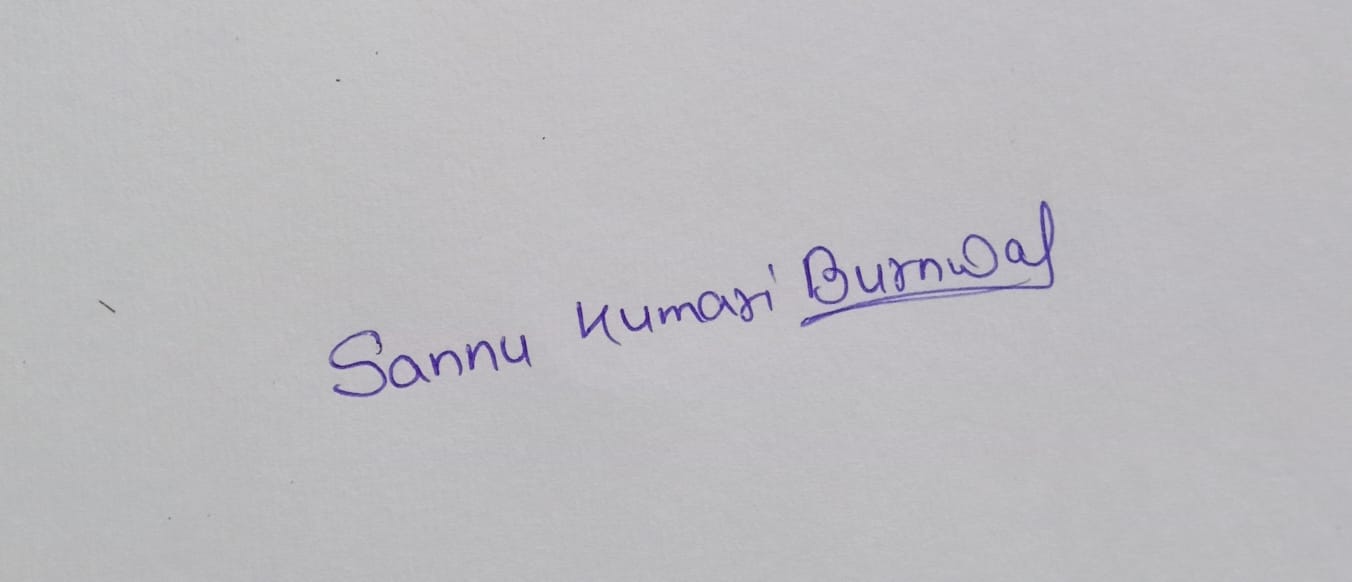 Sannu Kumari Burnwal